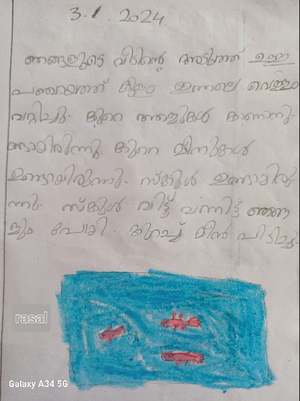 3.1.2024
ഞങ്ങളുടെ വീടിന്റെ അടുത്ത് ഉള്ള
പഞ്ചായത്ത് കുളം ഇന്നലെ വെള്ളം
വറ്റിച്ചു. കുറെ ആളുകൾ കാണാനു
ണ്ടായിരുന്നു കുറെ മീനുകൾ
ഉണ്ടായിരുന്നു. സ്കൂൾ ഉണ്ടായിരു
ന്നു. സ്കൂൾ വിട്ട് വന്നിട്ട് ഞങ്ങ
ളും പോയി. കുറച്ച് മീൻ പിടിച്ചു.
rasal
Galaxy A34 5G